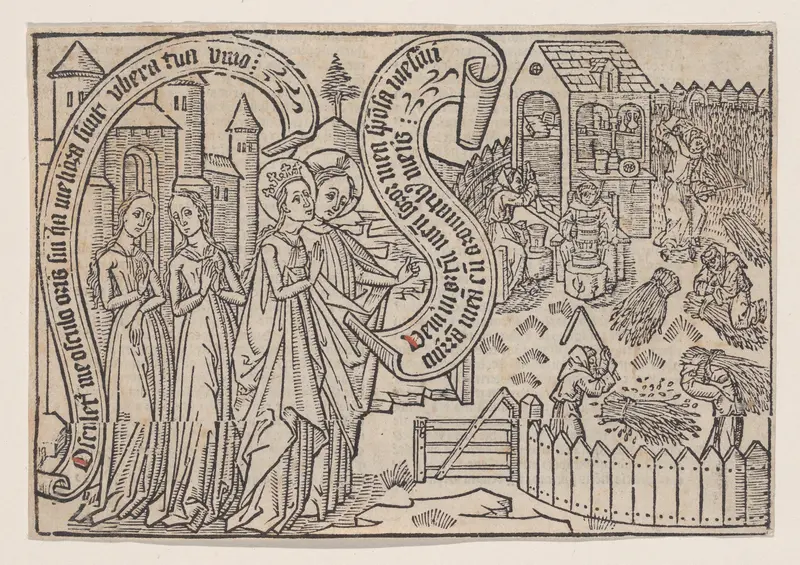 Osculetꝰ me osculo oris sui qa meliora sunt vbera tua vino :
Veni in ortū meū soror mea spōsa messui
mirrā meā cū aromatibꝰ meis :